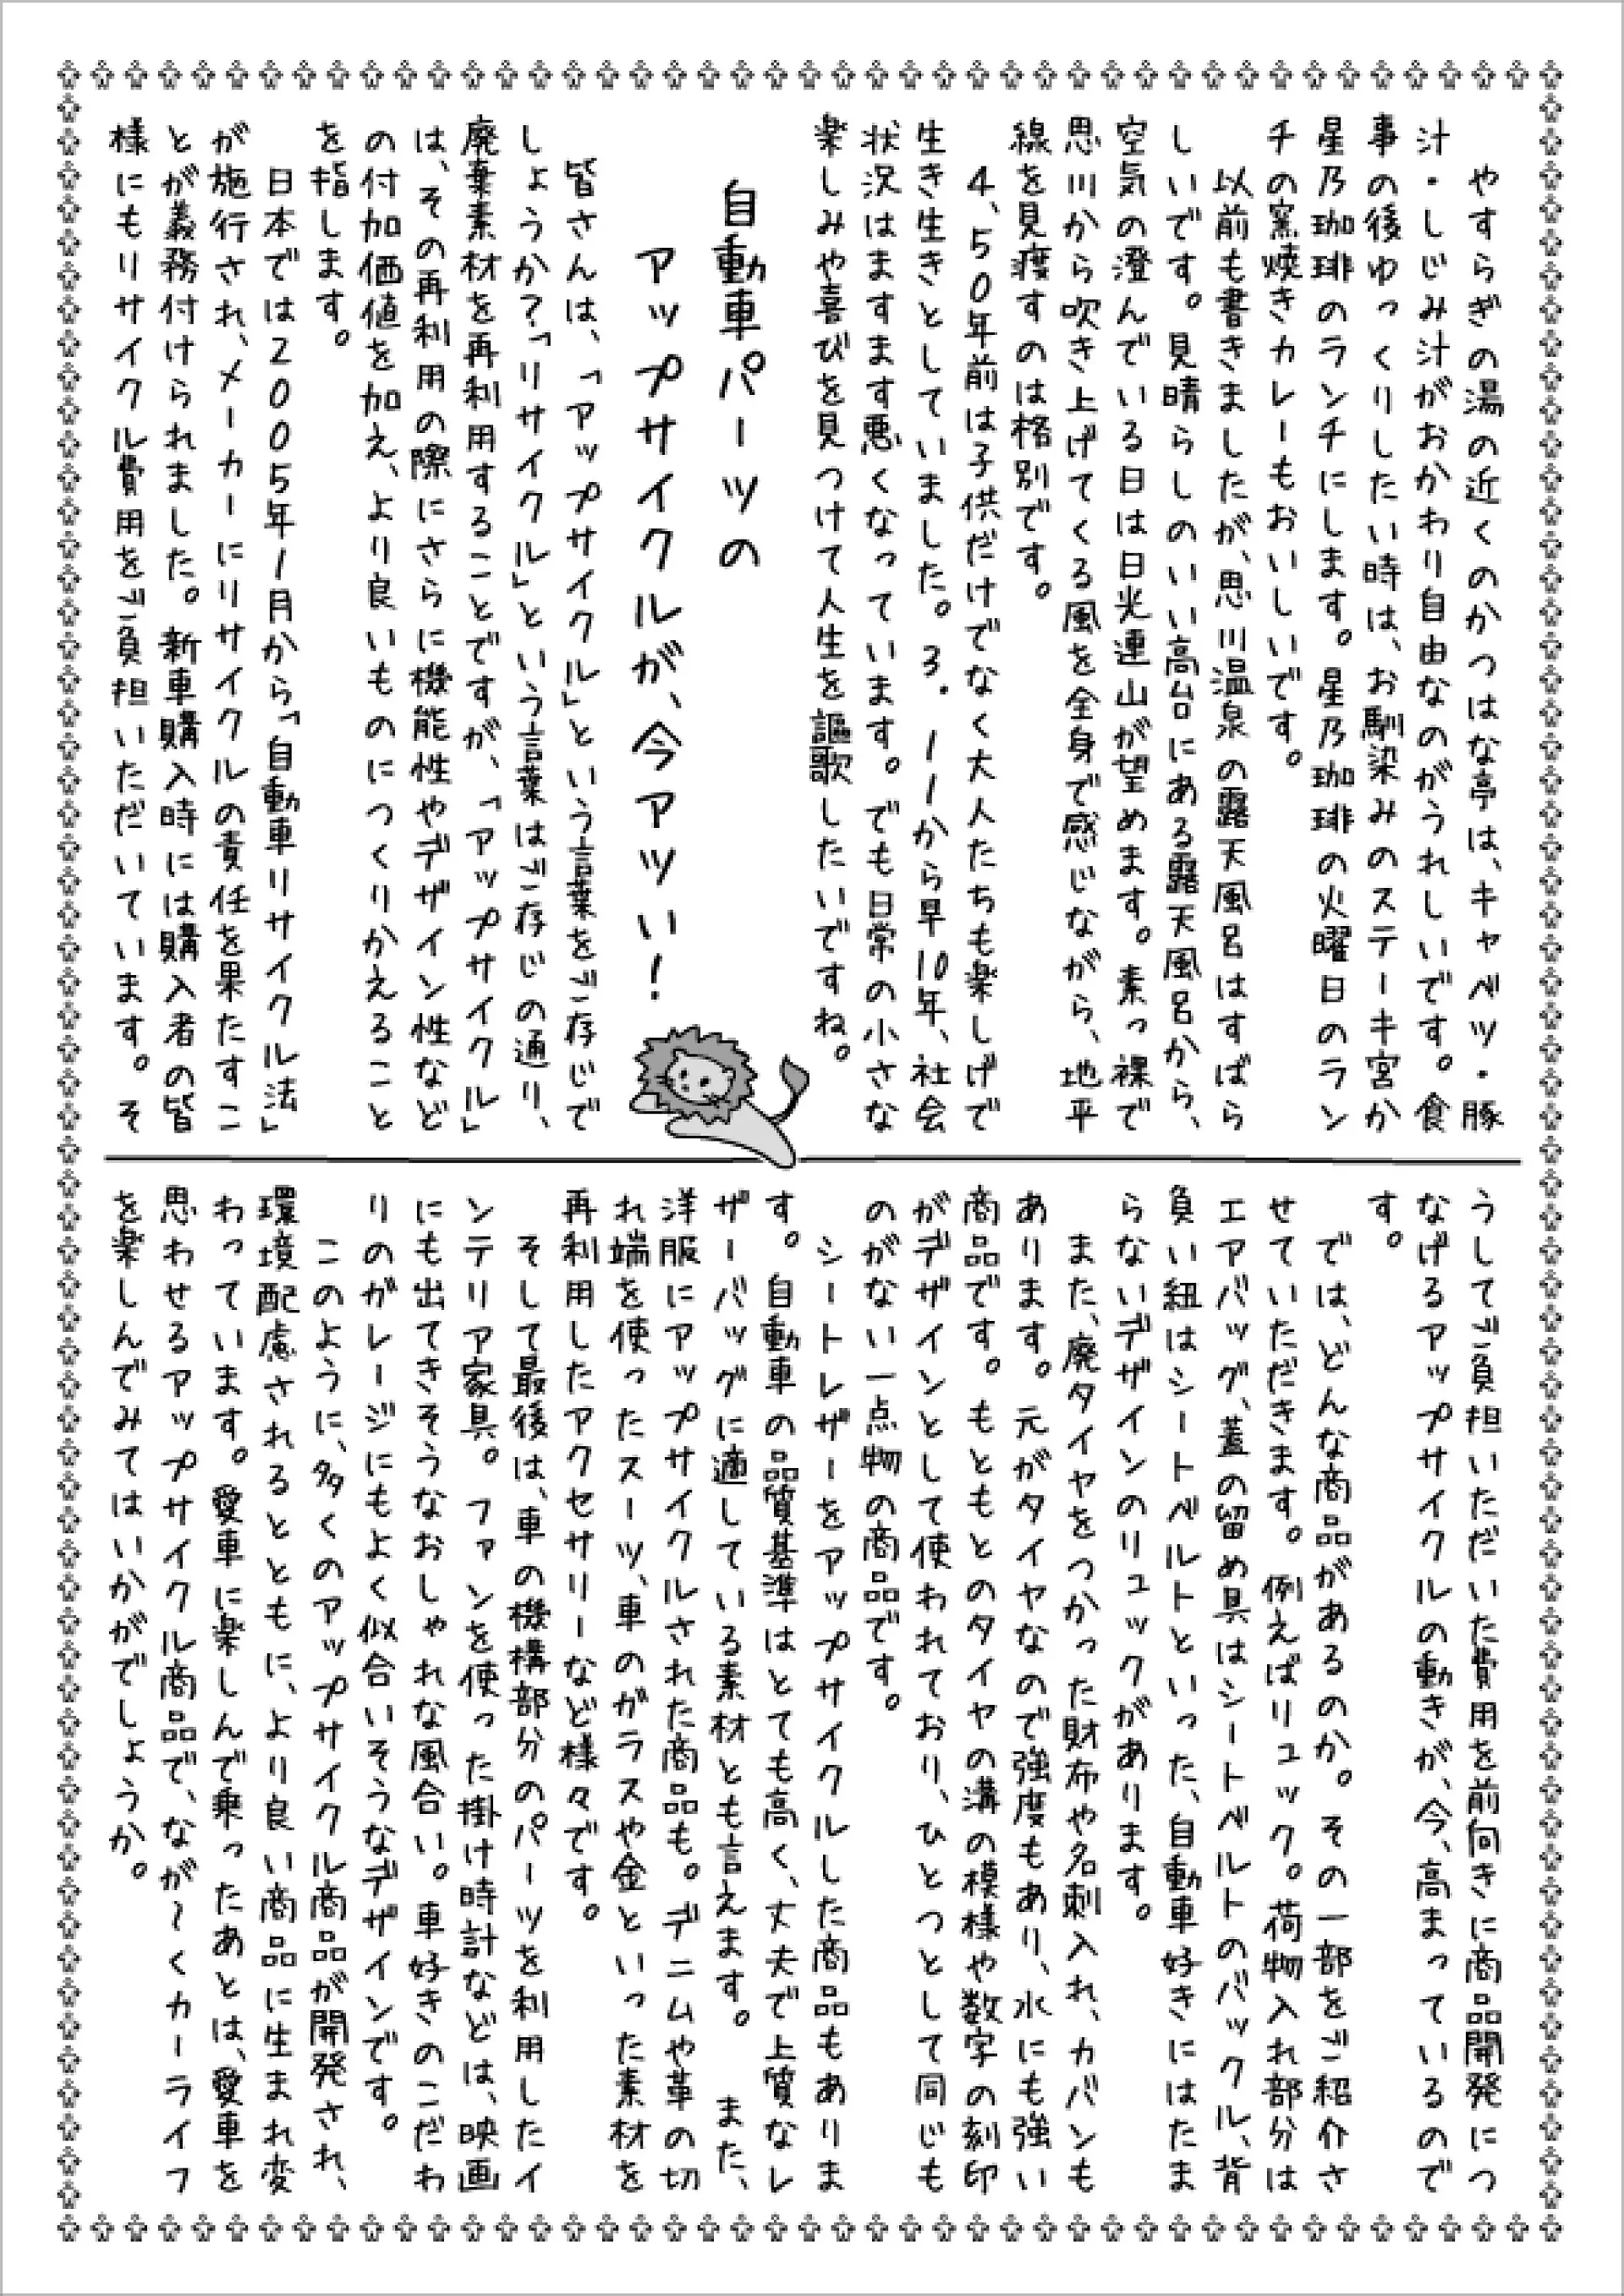 やすらぎの湯の近くのかつはな亭は、キャベツ・豚
汁・しじみ汁がおかわり自由なのがうれしいです。食
事の後ゆっくりしたい時は、お馴染みのステーキ宮か
星乃珈琲のランチにします。星乃珈琲の火曜日のラン
チの窯焼きカレーもおいしいです。
　以前も書きましたが、思川温泉の露天風呂はすばら
しいです。見晴らしのいい高台にある露天風呂から、
空気の澄んでいる日は日光連山が望めます。素っ裸で
思川から吹き上げてくる風を全身で感じながら、地平
線を見渡すのは格別です。
　４、５０年前は子供だけでなく大人たちも楽しげで
生き生きとしていました。３．１１から早10年、社会
状況はますます悪くなっています。でも日常の小さな
楽しみや喜びを見つけて人生を謳歌したいですね。
自動車パーツの
アップサイクルが、今アツい！
　皆さんは、「アップサイクル」という言葉をご存じで
しょうか？「リサイクル」という言葉はご存じの通り、
廃棄素材を再利用することですが、「アップサイクル」
は、その再利用の際にさらに機能性やデザイン性など
の付加価値を加え、より良いものにつくりかえること
を指します。
　日本では２００５年１月から「自動車リサイクル法」
が施行され、メーカーにリサイクルの責任を果たすこ
とが義務付けられました。新車購入時には購入者の皆
様にもリサイクル費用をご負担いただいています。そ
うしてご負担いただいた費用を前向きに商品開発につ
なげるアップサイクルの動きが、今、高まっているので
す。
　では、どんな商品があるのか。その一部をご紹介さ
せていただきます。例えばリュック。荷物入れ部分は
エアバッグ、蓋の留め具はシートベルトのバックル、背
負い紐はシートベルトといった、自動車好きにはたま
らないデザインのリュックがあります。
　また、廃タイヤをつかった財布や名刺入れ、カバンも
あります。元がタイヤなので強度もあり、水にも強い
商品です。もともとのタイヤの溝の模様や数字の刻印
がデザインとして使われており、ひとつとして同じも
のがない一点物の商品です。
　シートレザーをアップサイクルした商品もありま
す。自動車の品質基準はとても高く、丈夫で上質なレ
ザーバッグに適している素材とも言えます。　また、
洋服にアップサイクルされた商品も。デニムや革の切
れ端を使ったスーツ、車のガラスや金といった素材を
再利用したアクセサリーなど様々です。
　そして最後は、車の機構部分のパーツを利用したイ
ンテリア家具。ファンを使った掛け時計などは、映画
にも出てきそうなおしゃれな風合い。車好きのこだわ
りのガレージにもよく似合いそうなデザインです。
　このように、多くのアップサイクル商品が開発され、
環境配慮されるとともに、より良い商品に生まれ変
わっています。愛車に楽しんで乗ったあとは、愛車を
思わせるアップサイクル商品で、なが～くカーライフ
を楽しんでみてはいかがでしょうか。